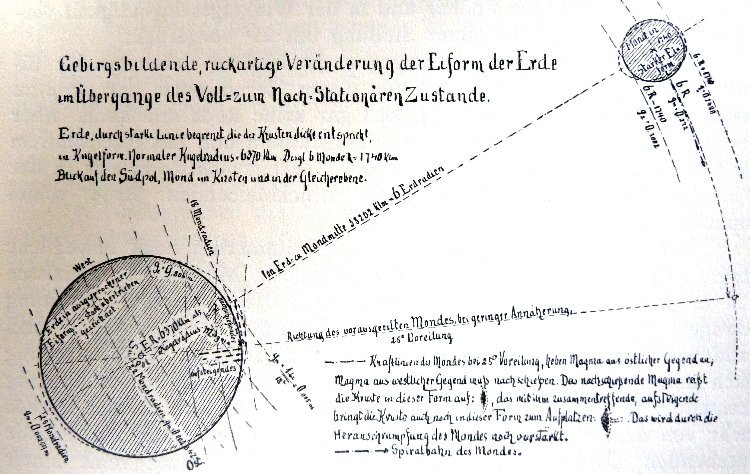 Gebirgsbildende, ruckartige Veränderung der Eiform der Erde
im Übergange des Voll= zum Nach-Stationären Zustande.
Erde, durch starke Linie begrenzt, die der Krustendicke entspricht,
in Kugelform. Normaler Kugelradius = 6370 Klm Desgl b Monde R = 1740 Klm
Blick auf den Südpol, Mond im Knoten und in der Gleicherebene.
Mond in
starker Ei=
form
6 R + 1740
6 R
6 R - 1740
Von Erd- zu Mondmitte 38202 Klm = 6 Erdradien
18 Mondradien
West
Erde in ausgesprochener
Eiform
stark übertrieben
gezeichnet
Magma
aufsteigendes
Ost
Richtung des vorausgeeilten Mondes, bei geringer Annäherung,
25° Voreilung
Kraftlinien du Mondes bei 25° Voreilung, heben Magma aus östlicher Gegend an,
Magma aus westlicher Gegend muß nachschießen. Das nachschießende Magma reißt
die Kruste in dieser Form auf: , das mit ihm zusammentreffende, aufsteigende
bringt die Kruste auch noch in dieser Form zum Aufplatzen: . Das wird durch die
Heranschrumpfung des Mondes noch verstärkt.
Spiralbahn des Mondes.